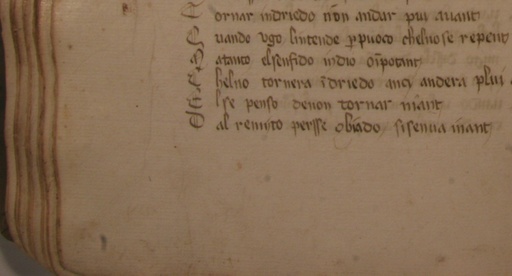 Tornar indriedo non andar plui auant
Quando vgo lintende perpuoco chelnose repent
Satanto elsenfido indio omipotant
Chelno tornera indriedo anci andera plui
Else penso denon tornar niant
Tal remito persse obiado sisenua inant